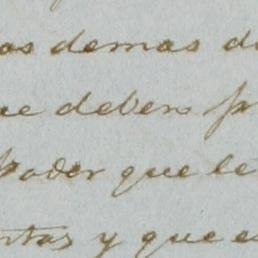 os demas d
ue deben p
poder que le
ntas y que e